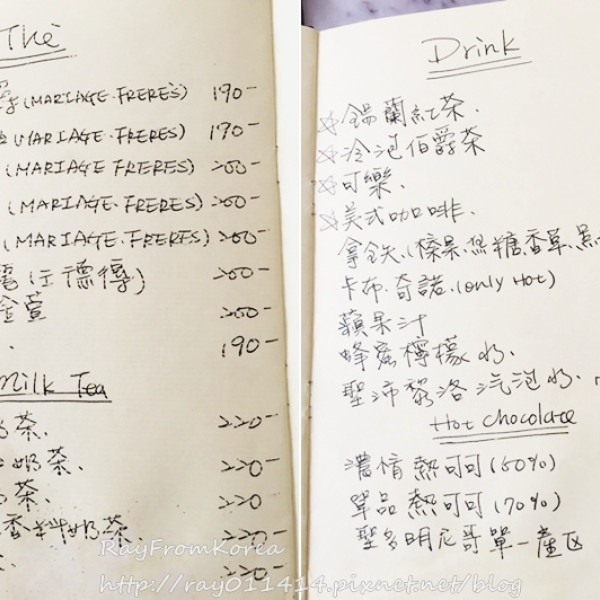 Thé
爵(MARIAGE·FRERES) 190-
(MARIAGE·FRERES) 190-
(MARIAGE FRERES) 200-
(MARIAGE·FRERES) 200-
(MARIAGE·FRERES) 200-
(王德傳) 200-
金萱 200-
190-
Milk Tea
奶茶. 220-
奶茶. 220-
奶茶. 220
香料奶茶. 220-
220-
Drink
☆錫蘭紅茶.
☆冷泡伯爵茶
☆可樂.
☆美式咖啡.
拿鐵.(榛果.焦糖.香草.黑
卡布.奇諾.(only Hot)
蘋果汁
蜂蜜檸檬水.
聖沛黎洛汽泡水.
Hot chocolate
濃情熱可可(50%)
單品熱可可(70%)
聖多明尼哥單一產区
RayFromKorea
http://ray011414.pixnet.net/blog